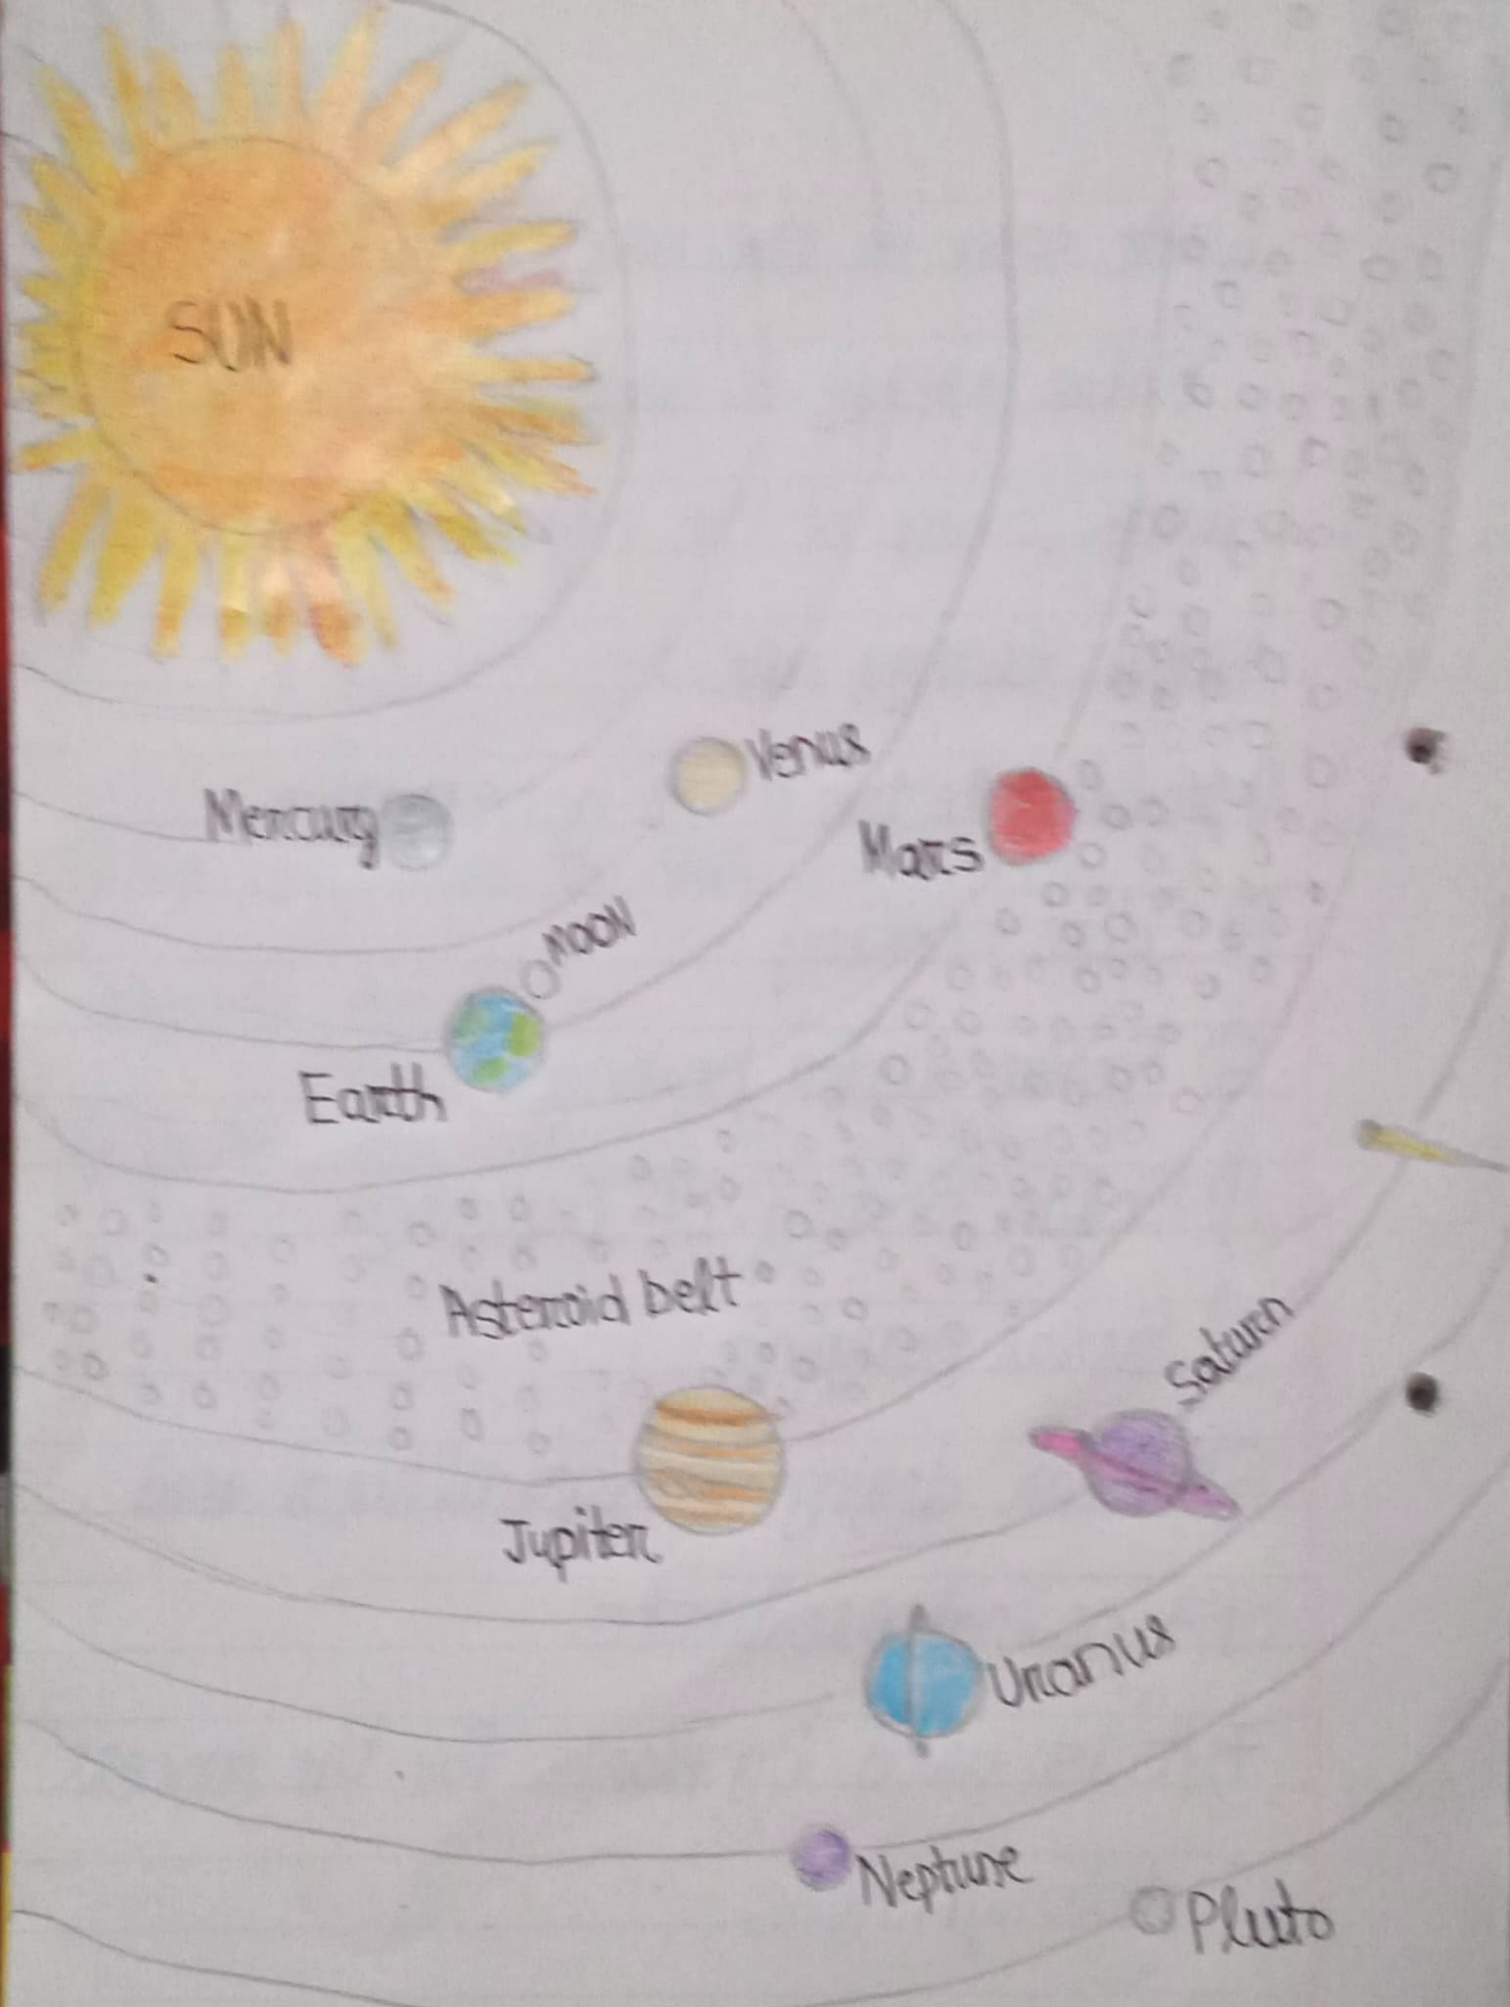 SUN
Venus
Mercury
Mars
MOON
Earth
Asteroid belt
Saturn
Jupiter
Uranus
Neptune
Pluto